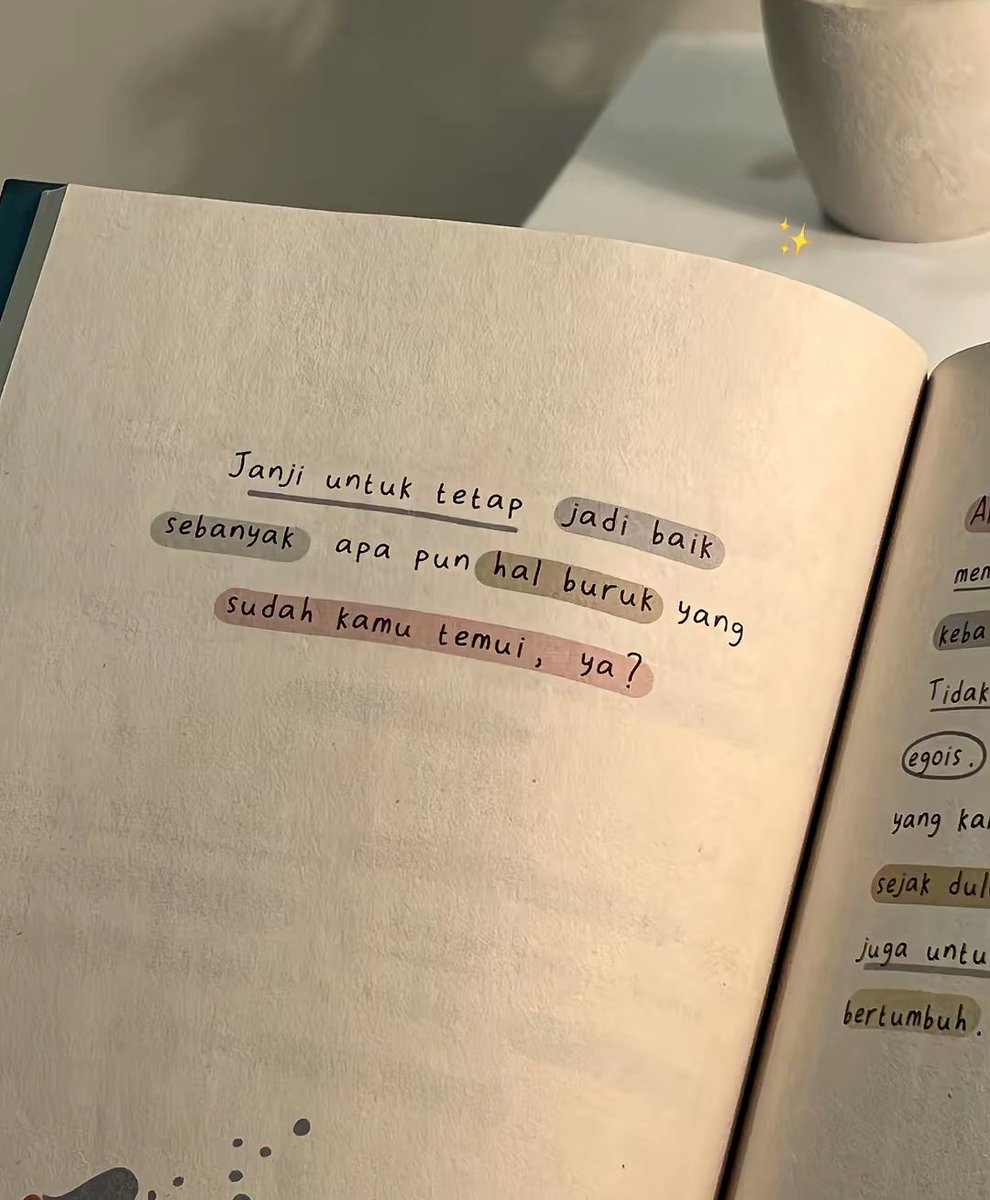 Janji untuk tetap jadi baik
sebanyak apa pun hal buruk yang
sudah kamu temui, ya?
men
keba
Tidak
egois.
yang ka
sejak dul
juga untu
bertumbuh.